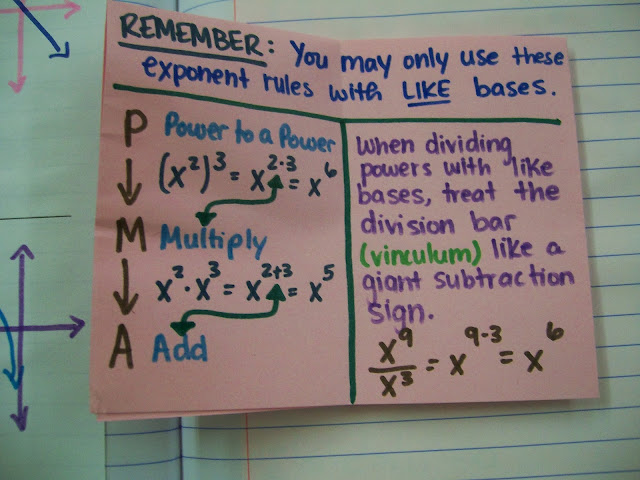 REMEMBER: You may only use these
exponent rules with LIKE bases.
P Power to a Power
(x²)³ = x²·³ = x⁶
M Multiply
x² · x³ = x²⁺³ = x⁵
A Add
When dividing
powers with like
bases, treat the
division bar
(vinculum) like a
giant subtraction
sign.
x⁹/x³ = x⁹⁻³ = x⁶